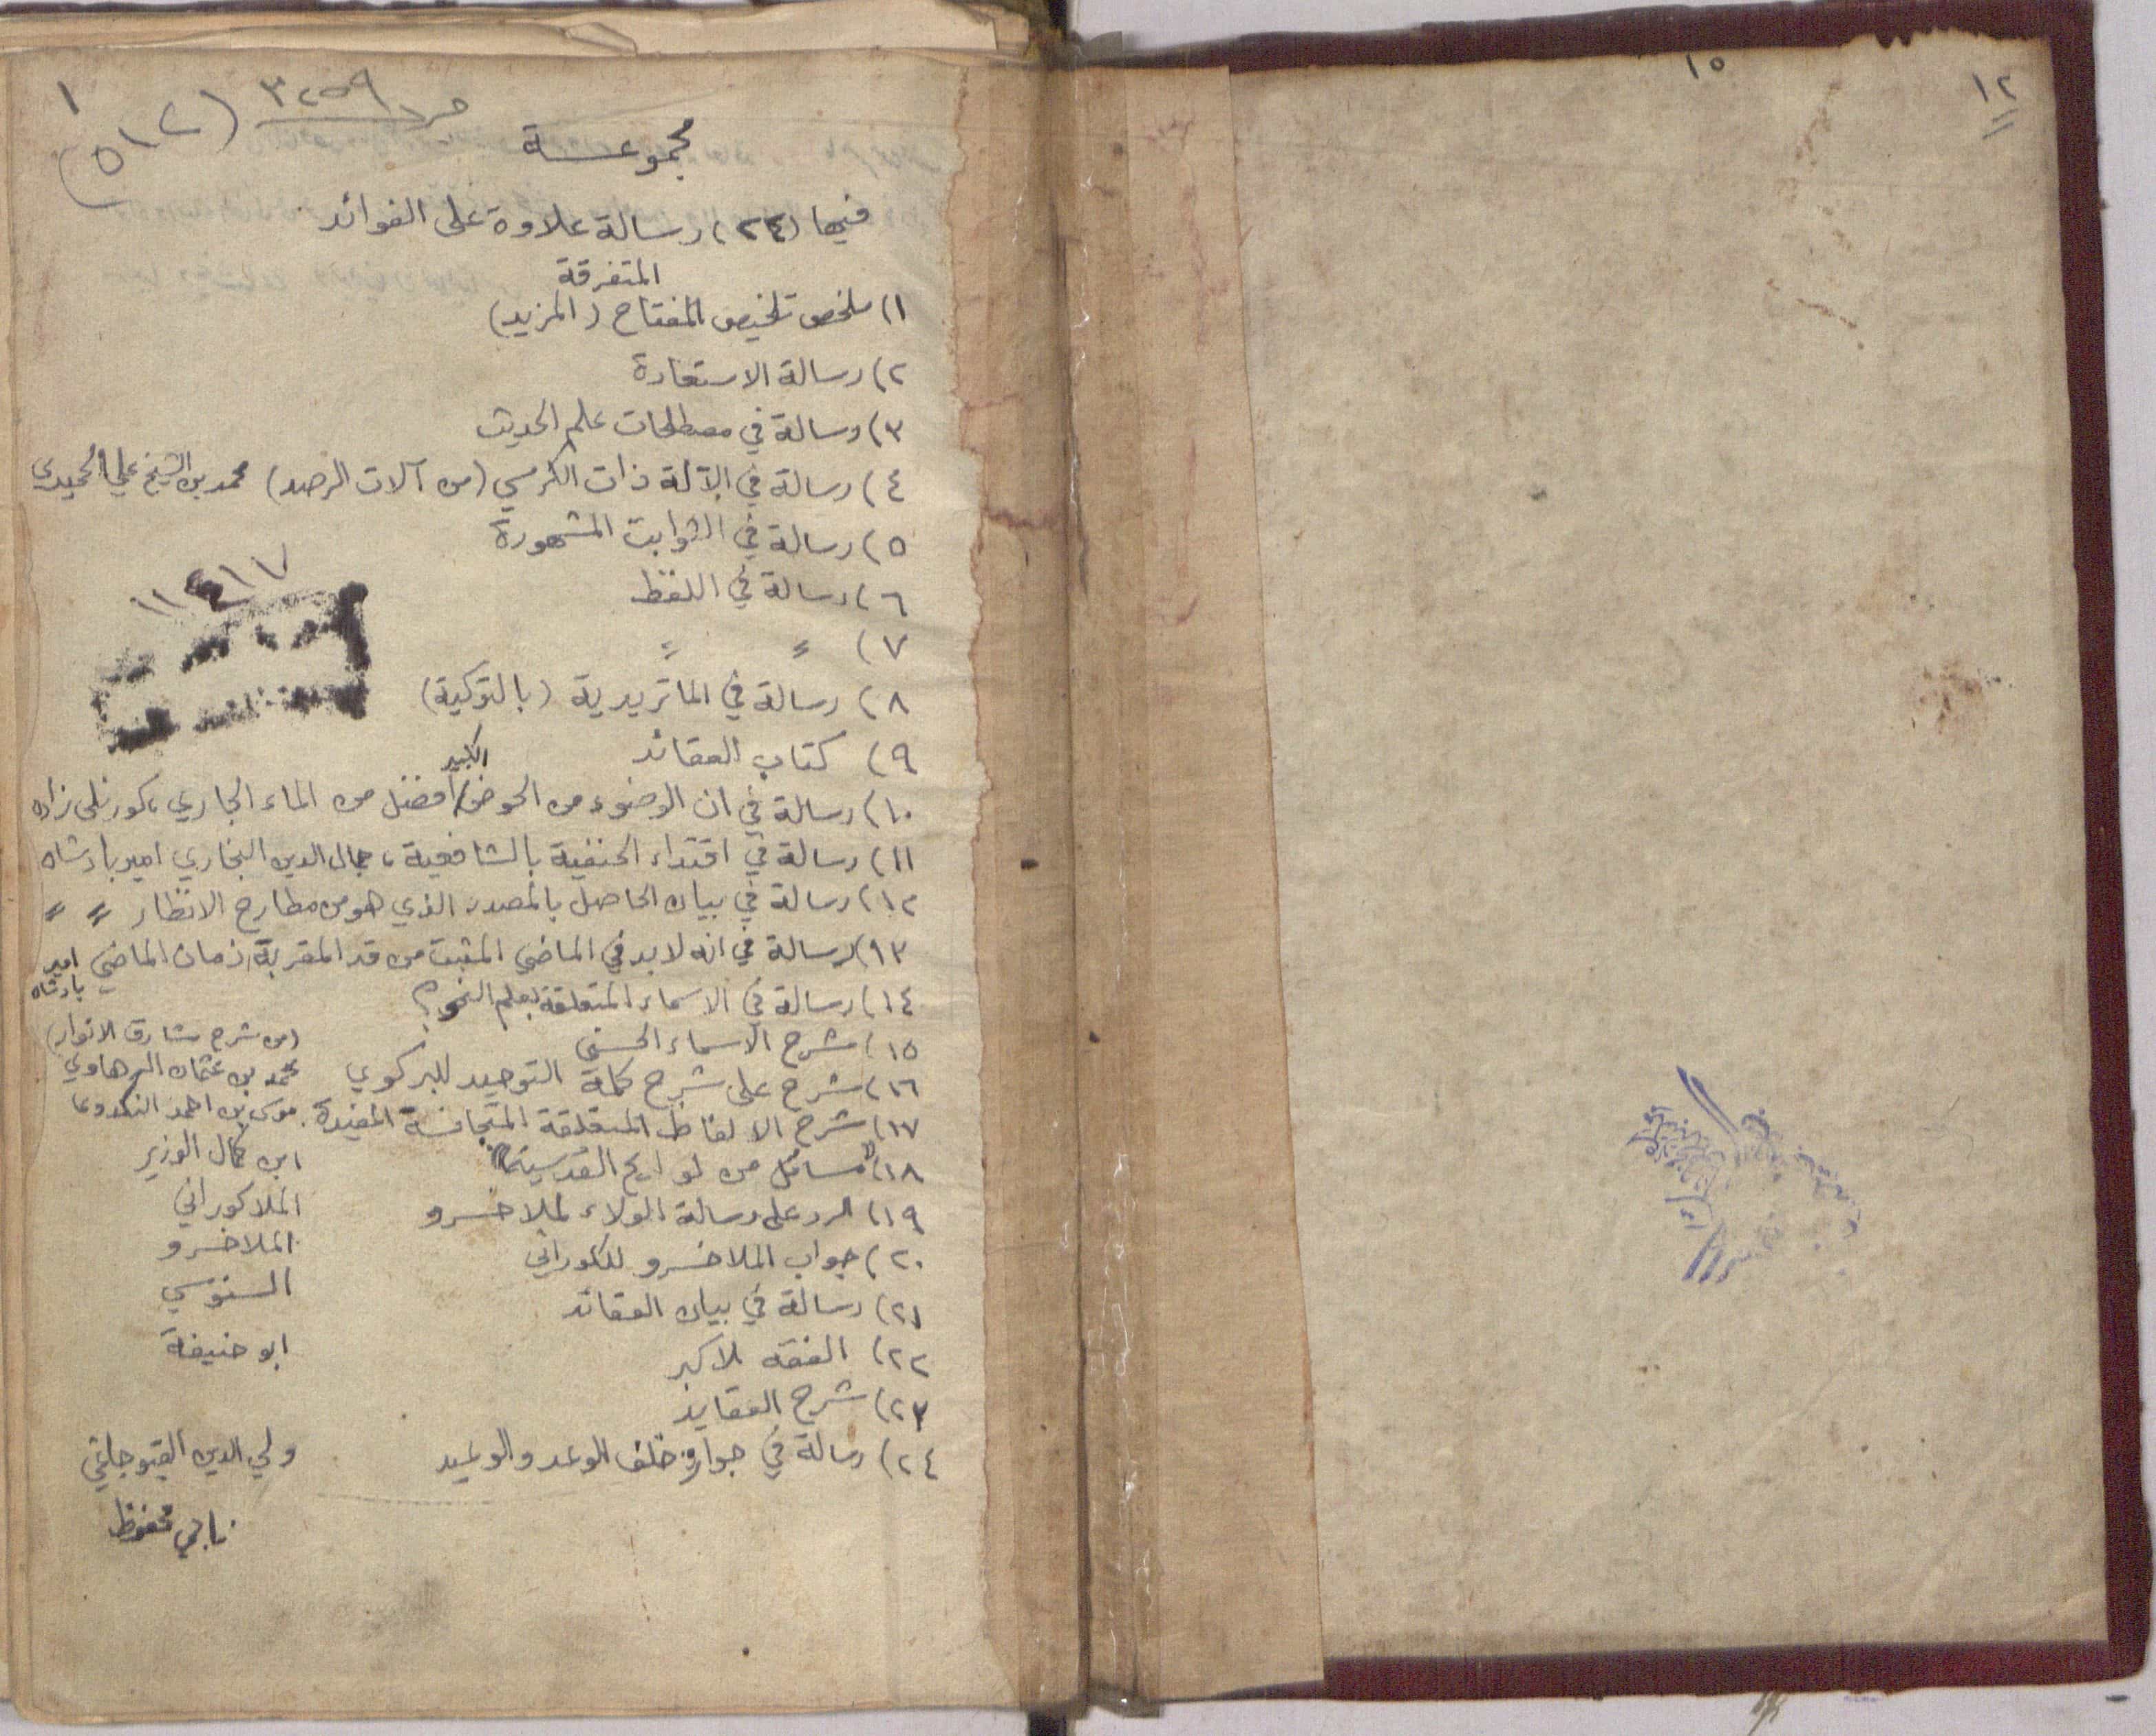 ١٢
١٥
١
٣٢٥٩
(٥١٢)
مجموعة
فيها (٢٤) رسالة علاوة على الفوائد
المتفرقة
١) ملخص تلخيص المفتاح (المزيد)
٢) رسالة الاستعارة
٣) رسالة في مصطلحات علم الحديث
٤) رسالة في الآلة ذات الكرسي (من آلات الرصد) محمد بن الشيخ علي الحميدي
٥) رسالة في الثوابت المشهورة
٦) رسالة في اللفظ
١١٤١٧
٧)〃 〃
٨) رسالة في الماتريدية (بالتركية)
٩) كتاب العقائد
١٠) رسالة في ان الوضوء من الحوض الكبير افضل من الماء الجاري، كوزلي زاده
١١) رسالة في اقتداء الحنفية بالشافعية، جمال الدين البخاري امير بادشاه
١٢) رسالة في بيان الحاصل بالمصدر الذي هو من مطارح الانظار 〃 〃
١٣) رسالة في انه لا بد في الماضي المثبت من قد المقربة زمان الماضي امير بادشاه
١٤) رسالة في الاسماء المتعلقة بعلم النحو؟
١٥) شرح الاسماء الحسنى (من شرح مشارق الانوار)
١٦) شرح على شرح كلمة التوحيد للبركوي محمد بن عثمان الرهاوي
١٧) شرح الالفاظ المتعلقة المتجانسة المفيدة. موسى بن احمد
١٨) "مسائل من لوايح القدسية" ابن كمال الوزير
١٩) الرد على رسالة الولاء لملا خسرو الملا كوراني
٢٠) جواب الملا خسرو للكوراني الملا خسرو
٢١) رسالة في بيان العقائد السنوسي
٢٢) الفقه الاكبر ابو حنيفة
٢٣) شرح العقايد
٢٤) رسالة في جواز خلف الوعد والوعيد ولي الدين
ناجي محفوظ